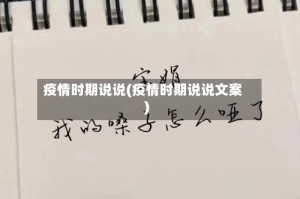 宋娟
疫情时期说说(疫情时期说说文案
)
我的嗓子怎么哑了